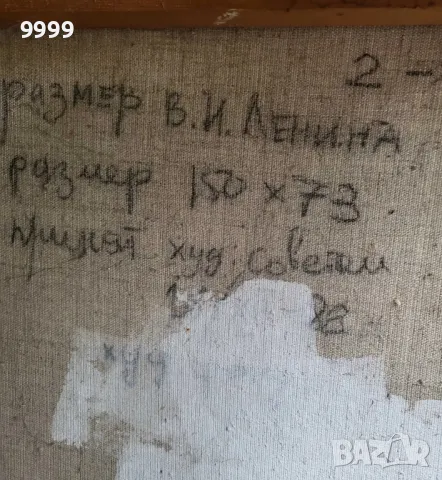 9999
2 -
размер В.И. Ленина
размер 150 x 73
принят худ. советом
худ
BAZAR